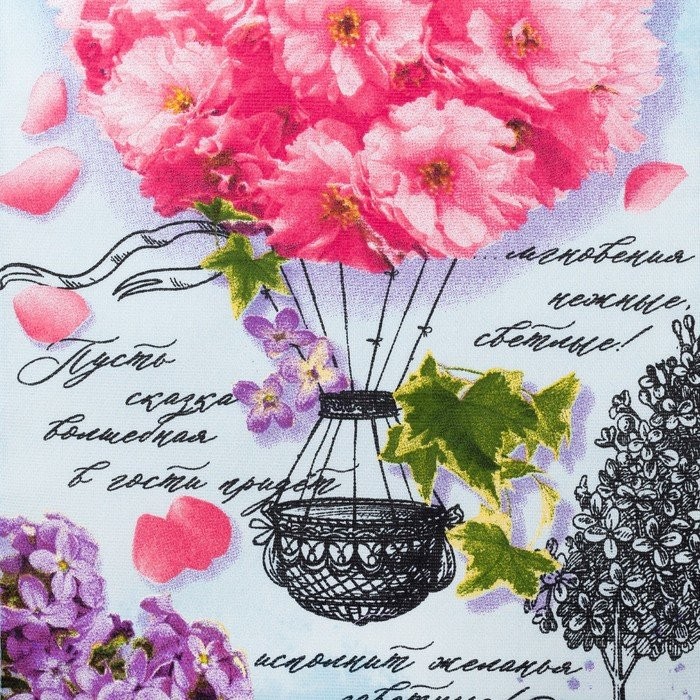 ...мгновения
нежные,
светлые!
Пусть
сказка
волшебная
в гости придёт
исполнит желанья